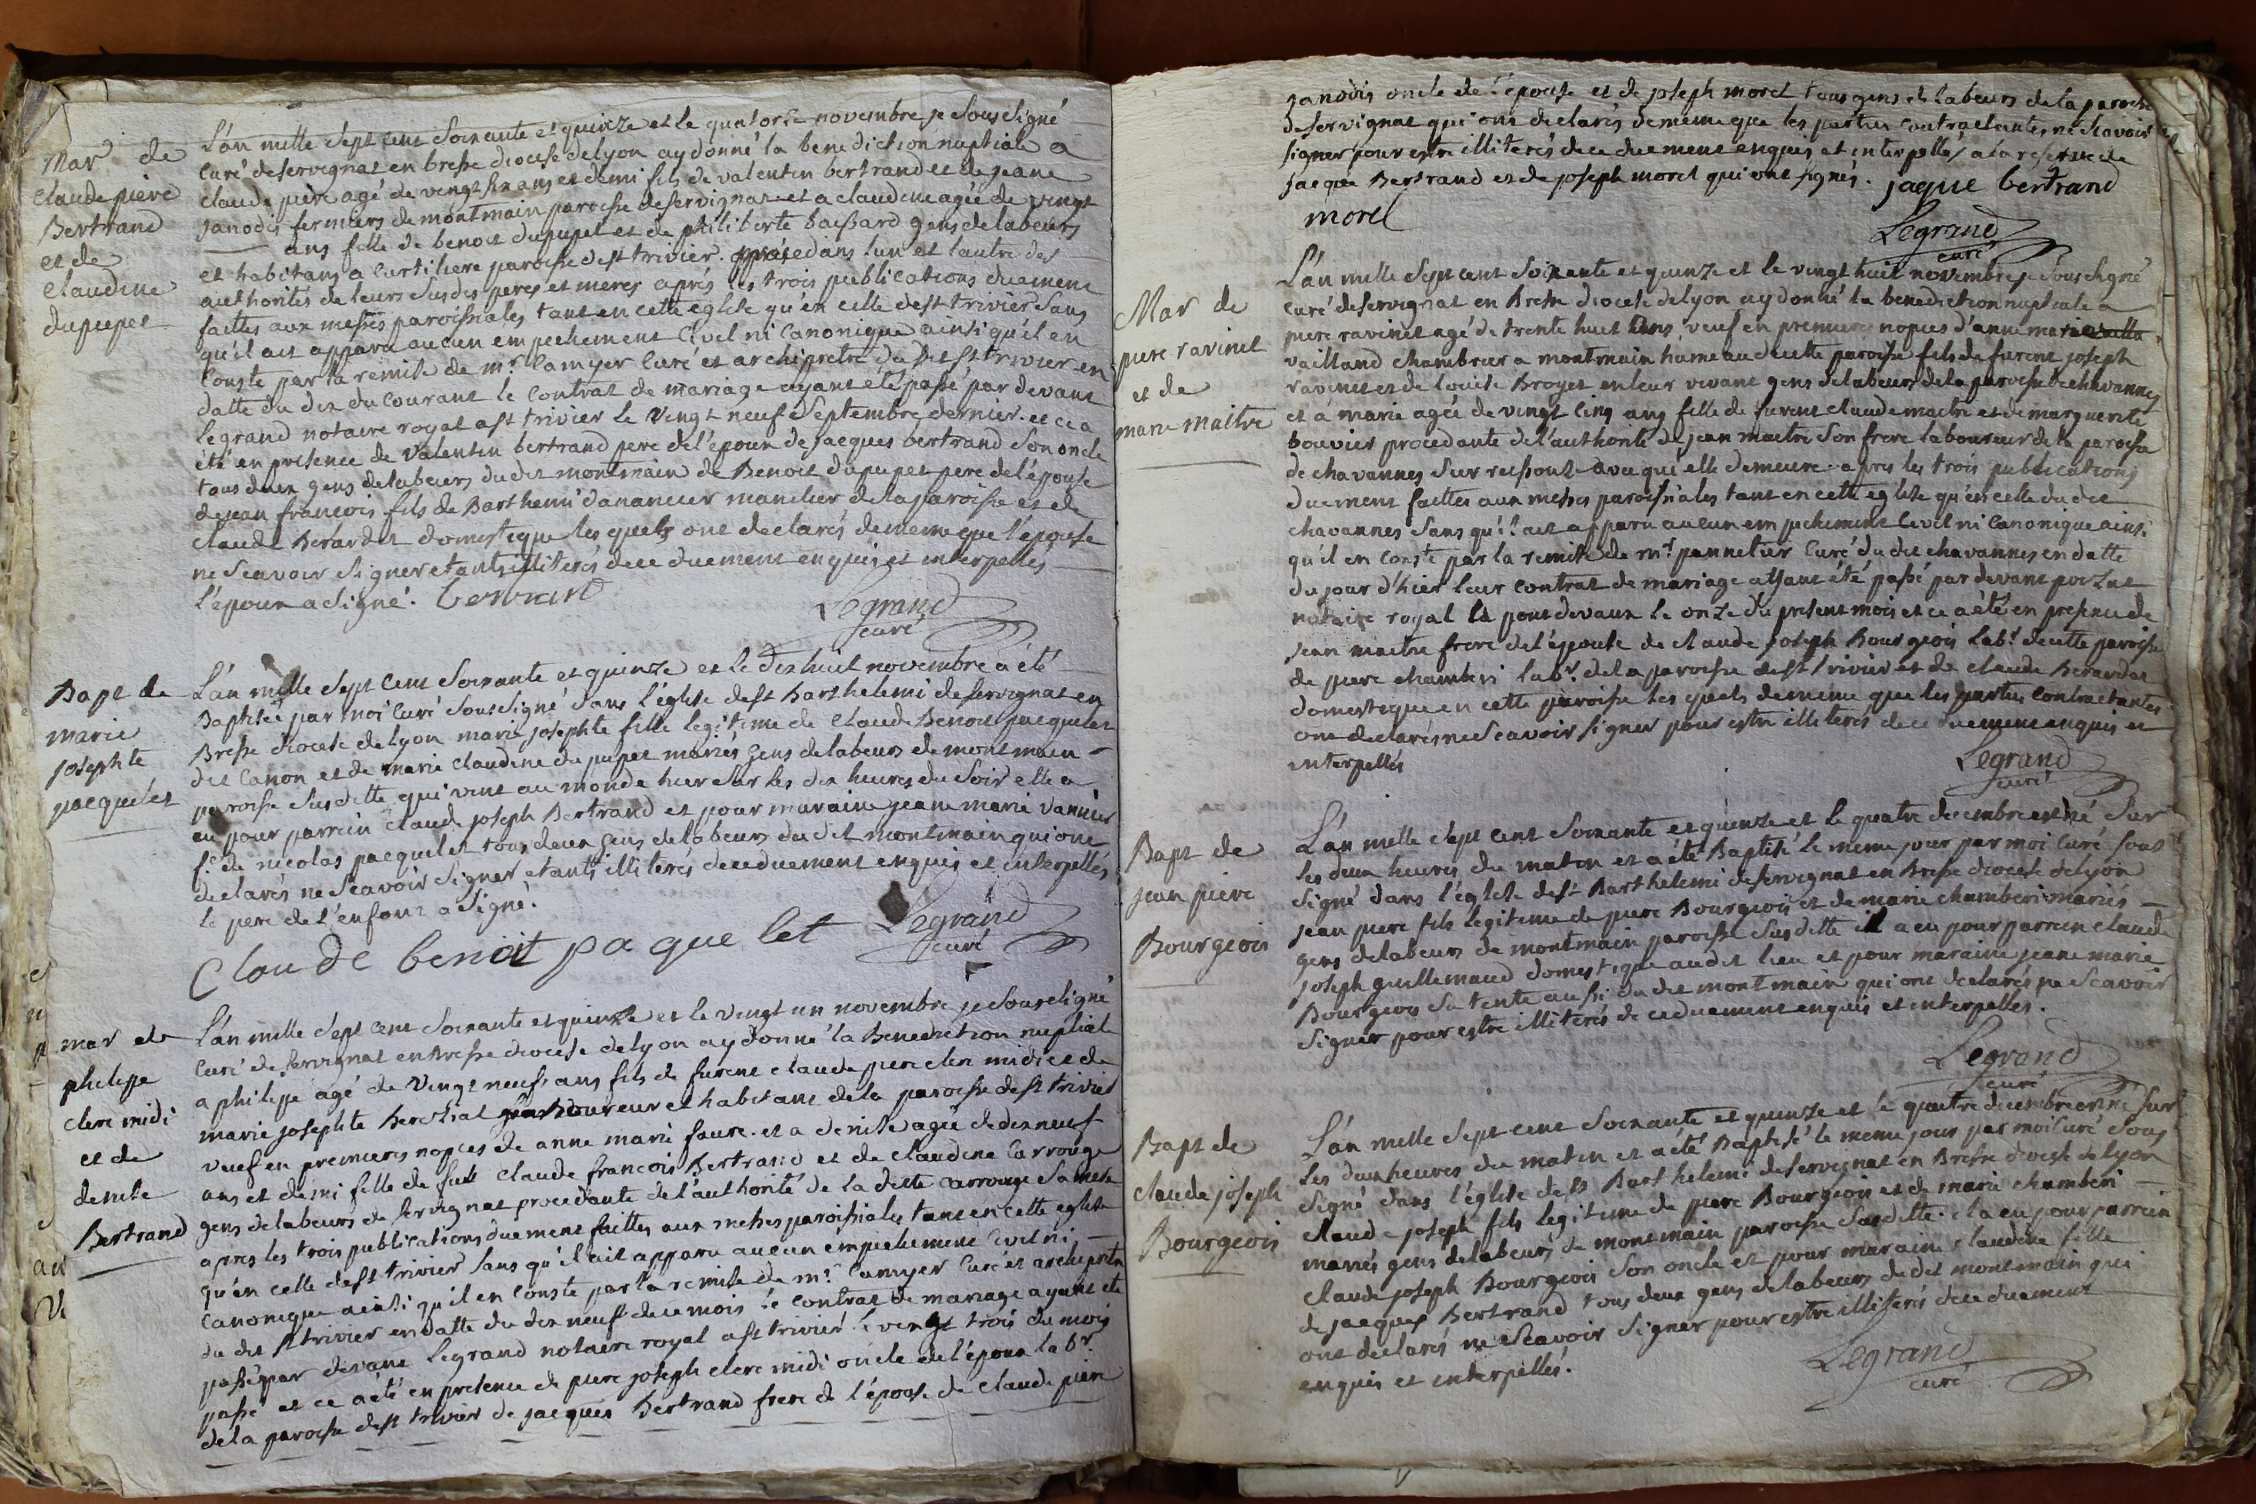 Mar de
claude piere
Bertrand
et de
claudine
dupupet
L'an mille sept cent soixante et quinze et le quatorze novembre je sous signé
curé de servignat en bresse diocese de lyon ay donné la benediction nuptiale a
claude piere agé de vingt six ans et demi fils de valentin bertrand et de jeane
janodis fermiers de montmain paroisse de servignat et a claudine agée de vingt
ans fille de benoit dupupet et de philiberte baissard gens de labeurs
et habitans a curtiliere paroisse de st trivier. procedans l'un et l'autre des
authorités de leurs susdis peres et meres aprés les trois publications duement
faittes aux messes paroissiales tant en cette eglise qu'en celle de st trivier sans
qu'il ait apparu aucun empechement civel ni canonique ainsi qu'il en
conste par la remise de mr. camyer curé et archipretre du dit st trivier en
datte du dix du courant le contrat de mariage ayant été passé par devant
legrand notaire royal a st trivier le vingt neuf septembre dernier. et ce a
été en presence de valentin bertrand pere de l'epoux de jacques bertrand son oncle
tous deux gens de labeurs du dit montmain de Benoit dupupet pere de l'épouse
de jean francois fils de Barthemi danancier manclier de la paroisse et de
claude Berardet domestique les quels ont declarés de meme que l'épouse
ne scavoir signer etants illiterés de ce duement enquis et interpellés
l'epoux a signé. bertrand
Legrand
curé
Bapt de
marie
josephte
pacquelet
L'an mille sept cent soixante et quinze et le dix huit novembre a été
Baptisée par moi curé sous signé dans l'église de st Barthelemi de servignat en
Bresse diocese de lyon marie josephte fille legitime de claude Benoit pacquelet
dit canon et de marie claudine dupupet mariés gens de labeurs de montmain
paroisse susditte qui vint au monde hier sur les dix heures du soir elle a
eu pour parrein claude joseph Bertrand et pour maraine jeane marie vannier
f.e de nicolas pacquelet tous deux gens de labeurs du dit montmain qui ont
declarés ne scavoir signer etants illiterés de ce duement enquis et interpellés
le pere de l'enfant a signé.
Claude benoit paquelet
Legrand
curé
mar de
philippe
clere midi
et de
denise
Bertrand
L'an mille sept cent soixante et quinze et le vingt un novembre je sous signé
curé de servignat en Bresse diocese de lyon ay donné la Benediction nuptiale
a philippe agé de vingt neuf ans fils de furent claude piere clere midi et de
marie josephte Berchial laboureur et habitant de la paroisse de st trivier
veuf en premieres nopces de anne marie faure. et a denise agée de dix neuf
ans et demi fille de feu claude francois Bertrand et de claudine carrouge
gens de labeurs de servignat procedante de l'authorité de la ditte carrouge sa mere
apres les trois publications duement faittes aux messes paroissiales tant en cette eglise
qu'en celle de st trivier sans qu'il ait apparu aucun empechement civel ni
canonique ainsi qu'il en conste par la remise de mr. camyer curé et archipretre
du dit st trivier en datte du dix neuf de ce mois le contrat de mariage ayant été
passé par devant legrand notaire royal a st trivier le vingt trois du mois
passé et ce a été en presence de piere joseph clere midi oncle de l'époux labr.
de la paroisse de st trivier de jacques Bertrand frere de l'épouse de claude piere
janodis oncle de l'épouse et de joseph morel tous gens de labeurs de la paroisse
de servignat qui ont declarés de meme que les parties contractantes ne scavoir
signer pour estre illiterés de ce duement enquis et interpellés a la reserve de
jacques Bertrand et de joseph morel qui ont signés. jaque bertrand
morel
Legrand
curé
Mar de
piere ravinet
et de
marie maitre
L'an mille sept cent soixante et quinze et le vingt huit novembre je sous signé
curé de servignat en Bresse diocese de lyon ay donné la benediction nuptiale a
piere ravinet agé de trente huit ans veuf en premieres nopces d'anne marie
vailland chambrier a montmain hameau de cette paroisse fils de furent joseph
ravinet et de louise Broyer en leur vivant gens de labeurs de la paroisse de chavannes
et a marie agée de vingt cinq ans fille de furent claude maitre et de marguerite
bouvier procedante de l'authorité de jean maitre son frere laboureur de la paroisse
de chavannes sur reissout avec qui elle demeure. apres les trois publications
duement faittes aux messes paroissiales tant en cette eglise qu'en celle du dit
chavannes sans qu'il ait apparu aucun empechement civel ni canonique ainsi
qu'il en conste par la remise de mr. pannetier curé du dit chavannes en datte
du jour d'hier leur contrat de mariage ayant été passé par devant
notaire royal a pont devaux le onze du present mois et ce a été en presence de
jean maitre frere de l'épouse de claude joseph Bourgeois labr. de cette paroisse
de piere chamberi labr. de la paroisse de st trivier et de claude Berardet
domestique en cette paroisse les quels de meme que les parties contractantes
ont declarés ne scavoir signer pour estre illiterés de ce duement enquis et
interpellés
Legrand
curé
Bapt de
jean piere
Bourgeois
L'an mille sept cent soixante et quinze et le quatre decembre est né sur
les deux heures du matin et a été Baptisé le meme jour par moi curé sous
signé dans l'église de st Barthelemi de servignat en Bresse diocese de lyon
jean piere fils legitime de piere Bourgeois et de marie chamberi mariés
gens de labeurs de montmain paroisse susditte il a eu pour parrein claude
joseph guillemaud domestique au dit lieu et pour maraine jeane marie
Bourgeois sa tente aussi du dit montmain qui ont declarés ne scavoir
signer pour estre illiterés de ce duement enquis et interpellés.
Legrand
curé
Bapt de
claude joseph
Bourgeois
L'an mille sept cent soixante et quinze et le quatre decembre est né sur
les deux heures du matin et a été Baptisé le meme jour par moi curé sous
signé dans l'église de st Barthelemi de servignat en Bresse diocese de lyon
claude joseph fils legitime de piere Bourgeois et de marie chamberi
mariés gens de labeurs de montmain paroisse susditte. il a eu pour parrein
claude joseph Bourgeois son oncle et pour maraine claudine fille
de jacques Bertrand tous deux gens de labeurs du dit montmain qui
ont declarés ne scavoir signer pour estre illiterés de ce duement
enquis et interpellés.
Legrand
curé